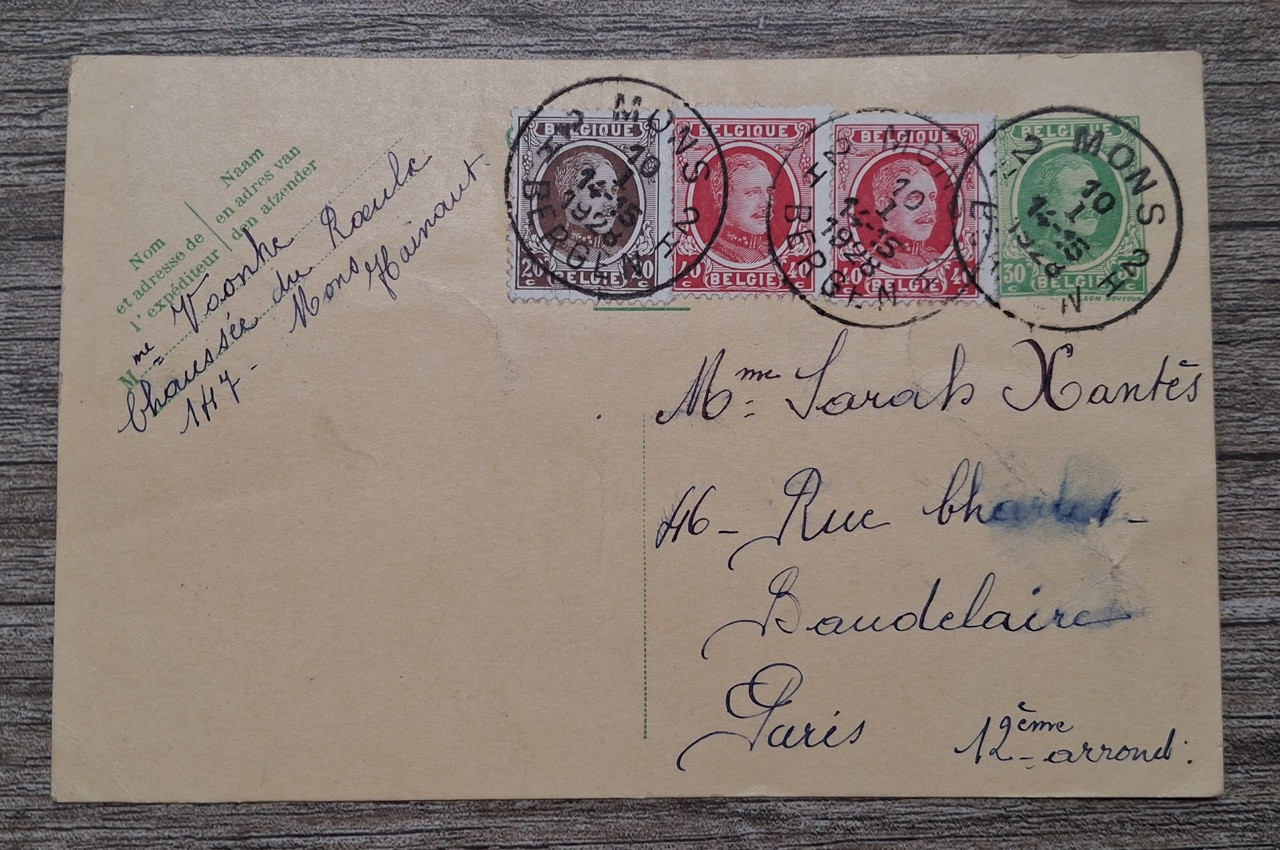 Nom
et adresse de
l'expéditeur
Naam
en adres van
den afzender
Mme Voonhe
chaussée du Roeulx
147 - Mons Hainaut
BELGIQUE
20 c BELGIË 20 c
BELGIQUE
40 c BELGIË 40 c
BELGIQUE
40 c BELGIË 40 c
BELGIQUE
30 c BELGIË
MONS 2H
10 1
14-15
1928
BERGEN 2H
MONS 2H
10 1
14-15
1928
BERGEN 2H
MONS 2H
10 1
14-15
1928
BERGEN 2H
Mme Sarah Xantès
46 - Rue Charles -
Baudelaire
Paris 12ème arrond.